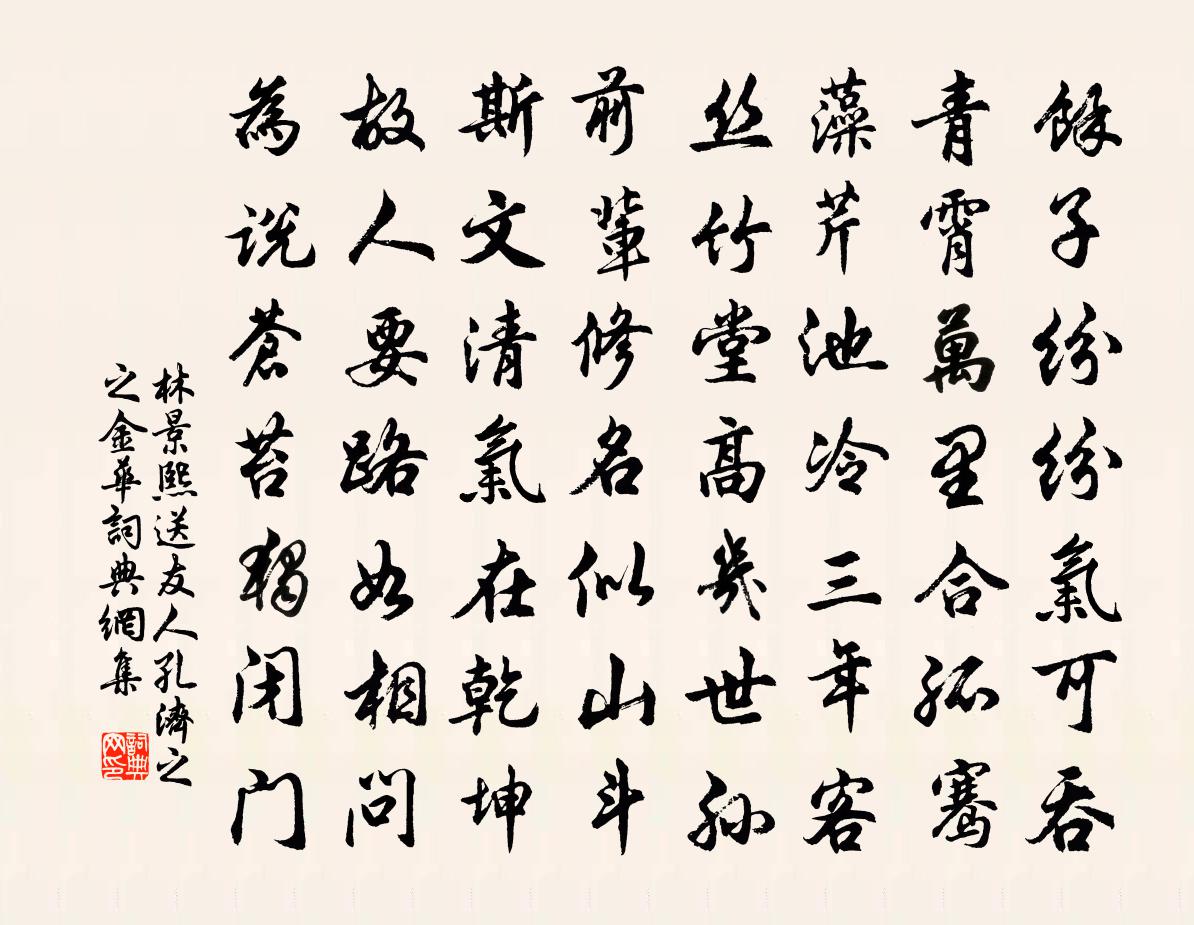 餘子紛紛氣可吞
青霄萬里合孤騫
藻芹池冷三年客
丝竹堂高幾世孫
前輩修名似山斗
斯文清氣在乾坤
故人要路如相問
為説蒼苔獨闭门
林景熙送友人孔濟之
之金華詞典網集
詞典
网印